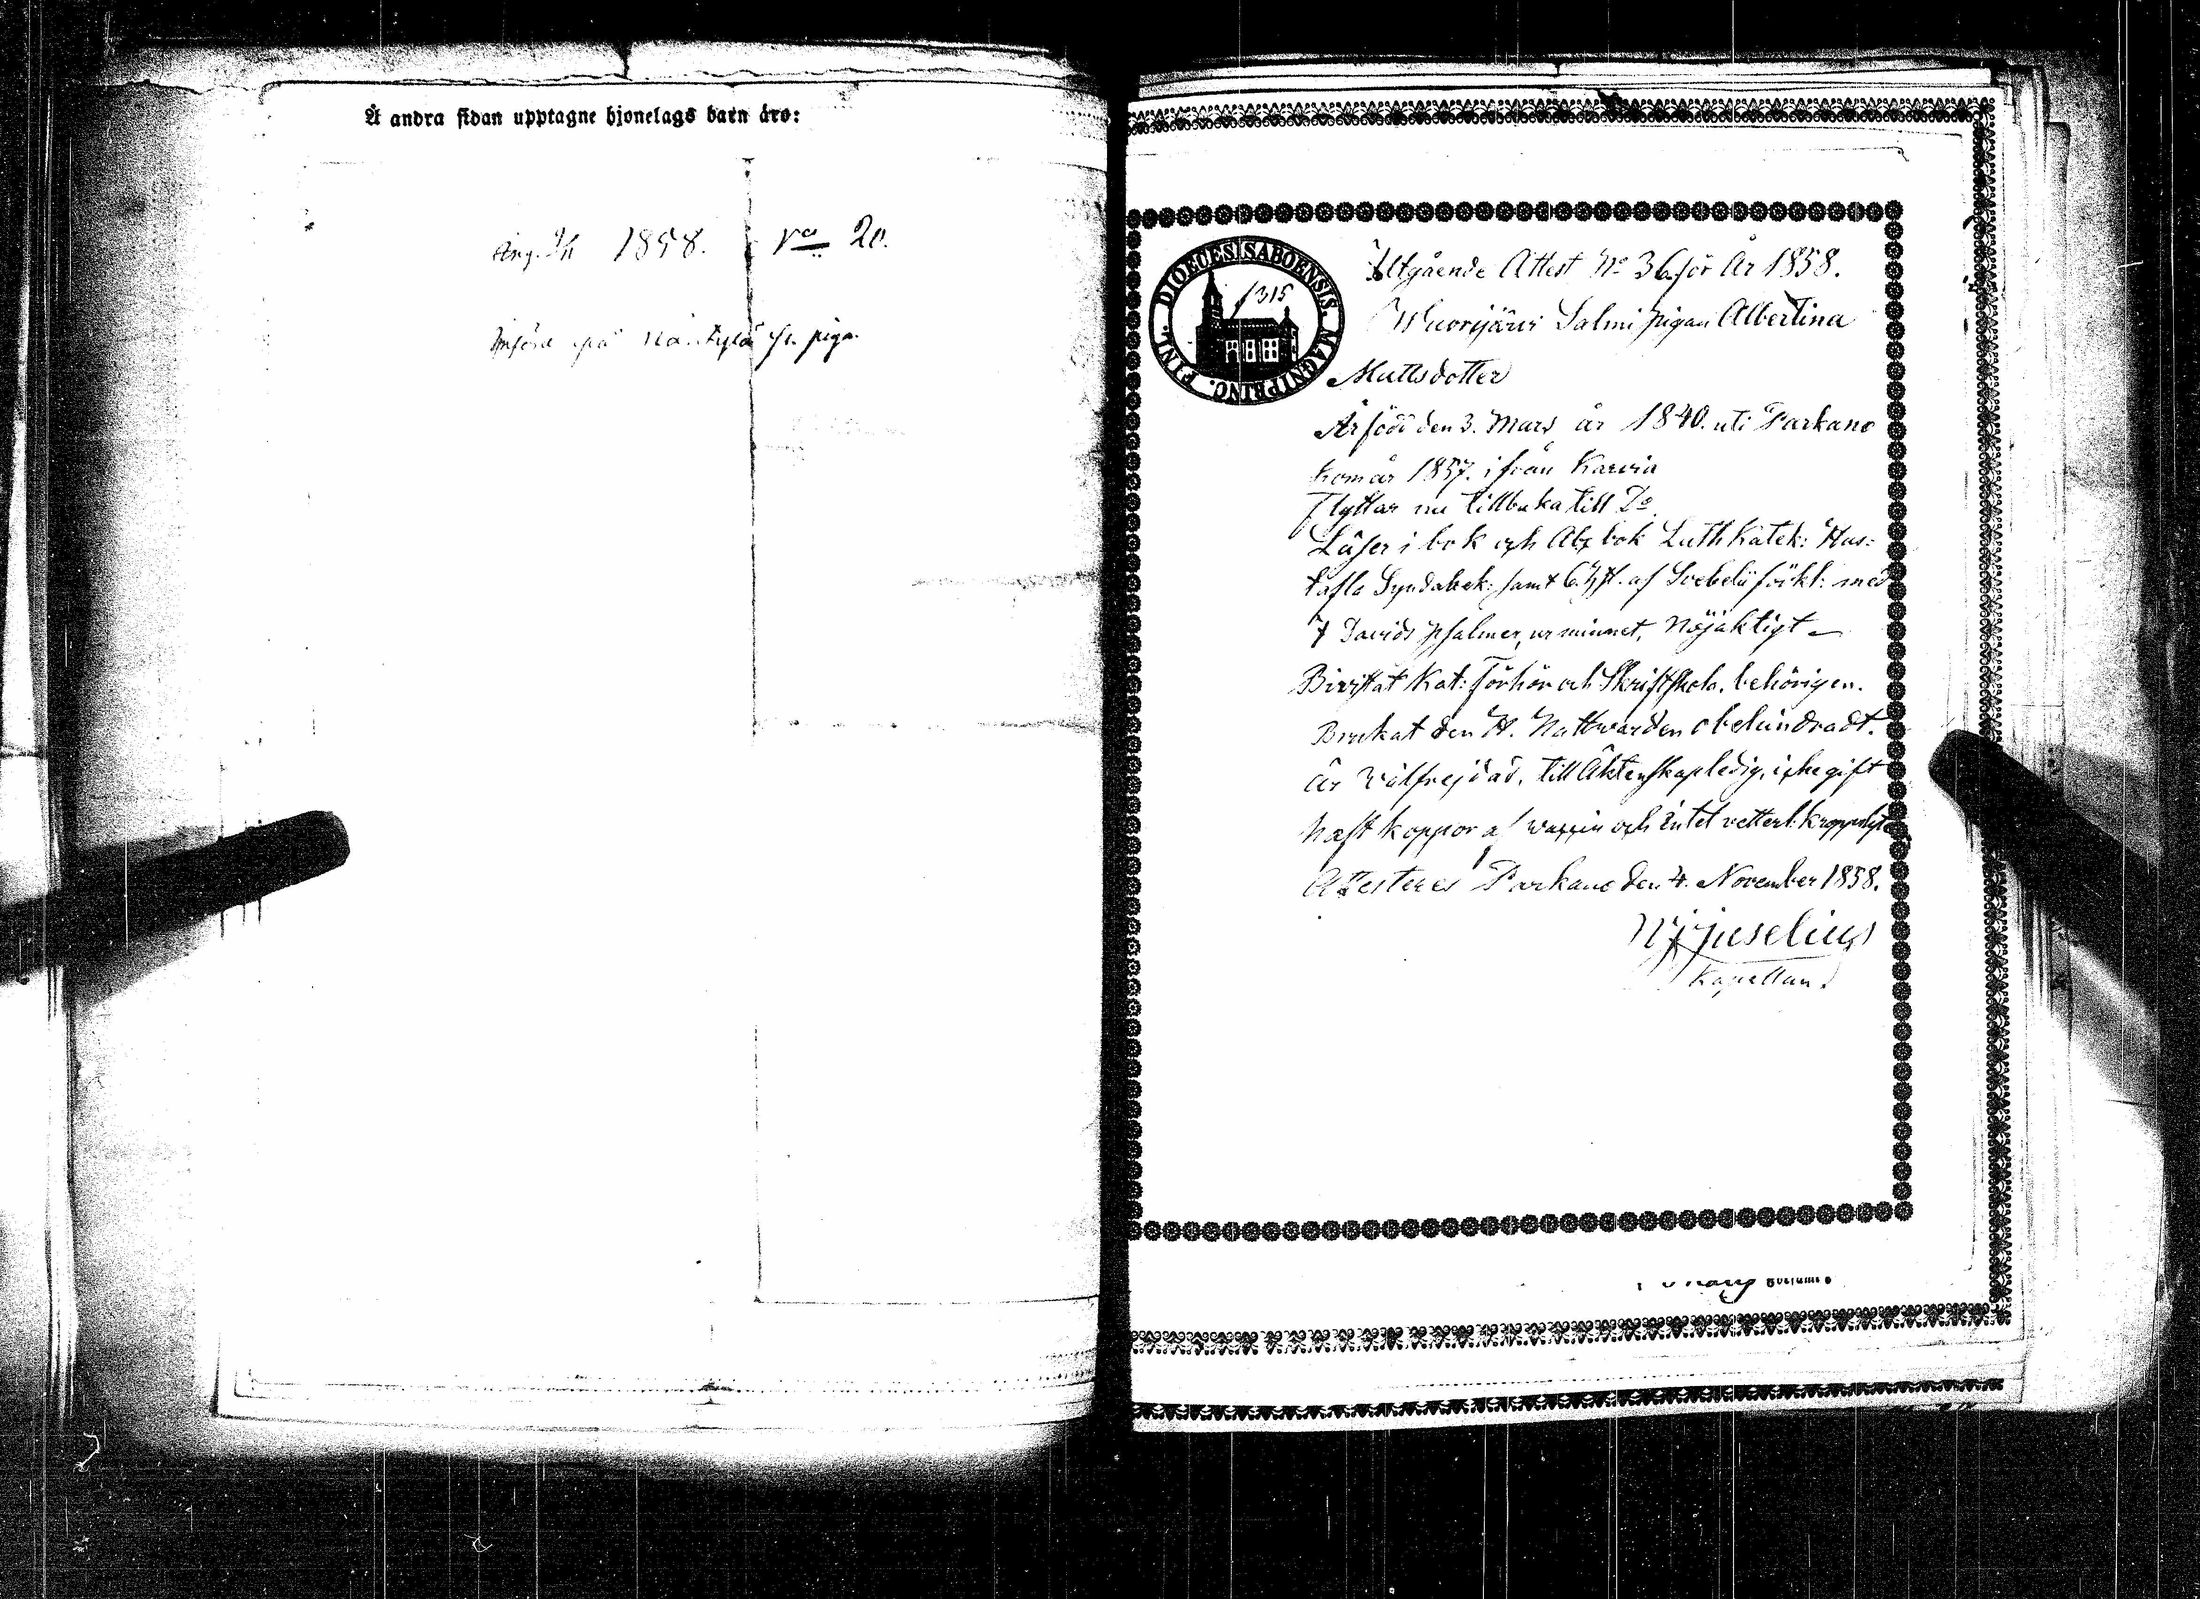 Å andra sidan upptagne hjonelags barn äro:
Ang. 1858. No 20.
Införd på piga.
DIOECESIS ABOENSIS. MAGNI PRINC. FINL.
f 315
Utgående Attest No 36 för År 1858.
Wuorijärvi Salmi pigan Albertina
Mattsdotter
Är född den 3. Mars år 1840. uti Parkano
kom år 1857. ifrån Karvia
Flyttar nu tillbaka till Do.
Läser i bok och Abc bok Luth Katek: Hus:
tafla Syndabek: samt 6. af Svebelii förkl: med
7 Davids psalmer, ur minnet, Nöjaktigt
Bivistat Kat: förhör och Skriftskola, behörigen.
Brukat den H. Nattvarden obehindradt.
är Wälfrejdad, till Äktenskap ledig, icke gift
haft koppor af vaccin och intet vetterl: kroppslyte
Attesteras Parkano den 4. November 1858.
Juselius
Kapellan.